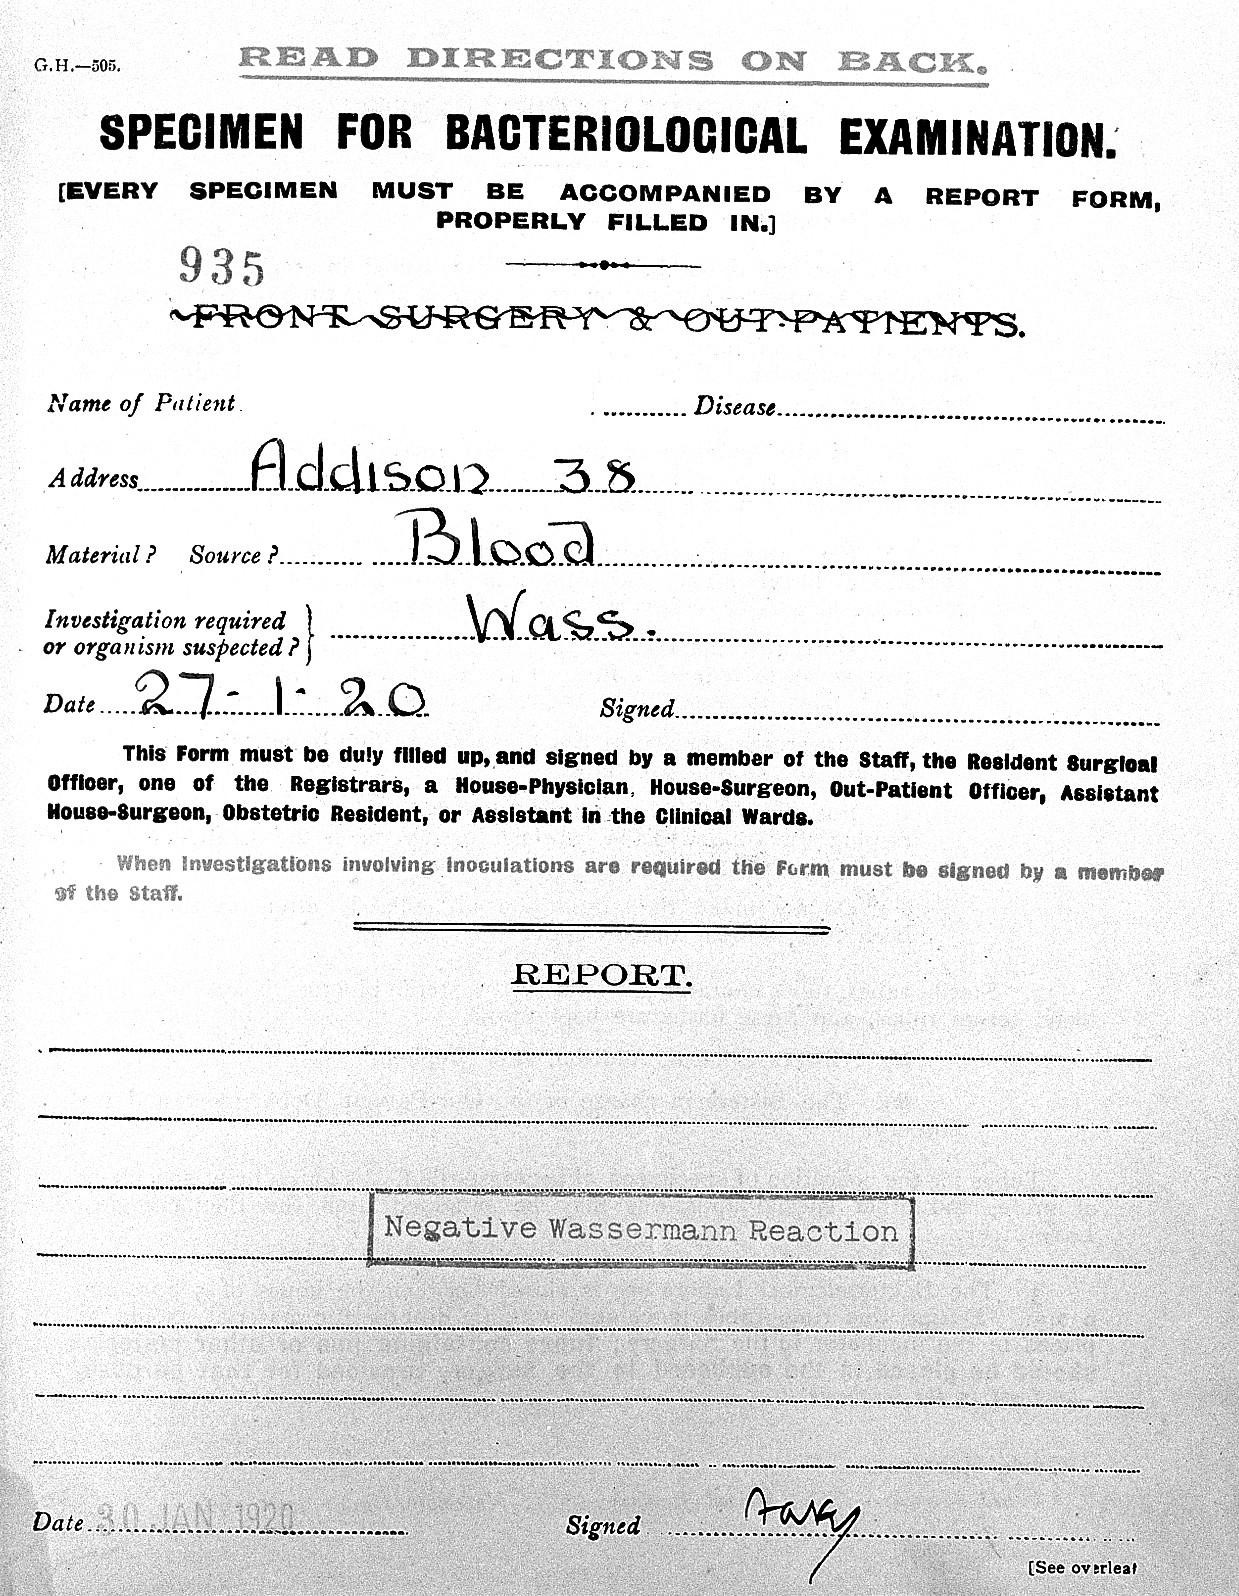 G.H.—505.
READ DIRECTIONS ON BACK.
SPECIMEN FOR BACTERIOLOGICAL EXAMINATION.
[EVERY SPECIMEN MUST BE ACCOMPANIED BY A REPORT FORM,
PROPERLY FILLED IN.]
935
FRONT SURGERY & OUT-PATIENTS.
Name of Patient Disease
Address Addison 38
Material? Source? Blood
Investigation required
or organism suspected? Wass.
Date 27-1-20 Signed
This Form must be duly filled up, and signed by a member of the Staff, the Resident Surgical
Officer, one of the Registrars, a House-Physician, House-Surgeon, Out-Patient Officer, Assistant
House-Surgeon, Obstetric Resident, or Assistant in the Clinical Wards.
When Investigations involving inoculations are required the Form must be signed by a member
of the Staff.
REPORT.
Negative Wassermann Reaction
Date 30 JAN 1920 Signed
[See overleaf